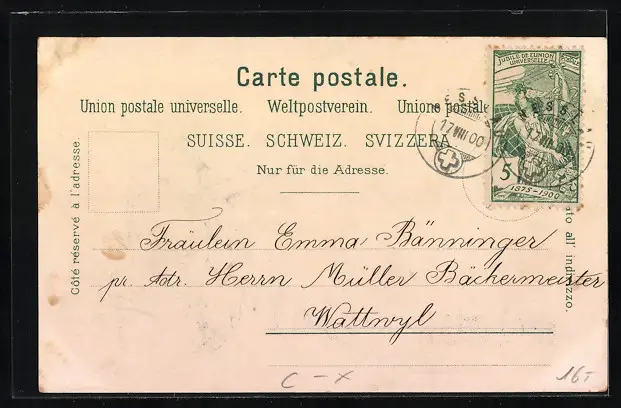 JUBILÉ DE L'UNION
UNIVERSELLE POSTALE
Carte postale.
Union postale universelle. Weltpostverein. Unione postale
SUISSE. SCHWEIZ. SVIZZERA.
Nur für die Adresse.
17 VIII 00
5
1875-1900
Côté réservé à l'adresse.
all' indirizzo.
Fräulein Emma Bänninger
pr. Adr. Herrn Müller Bäckermeister
Wattwyl
C - X